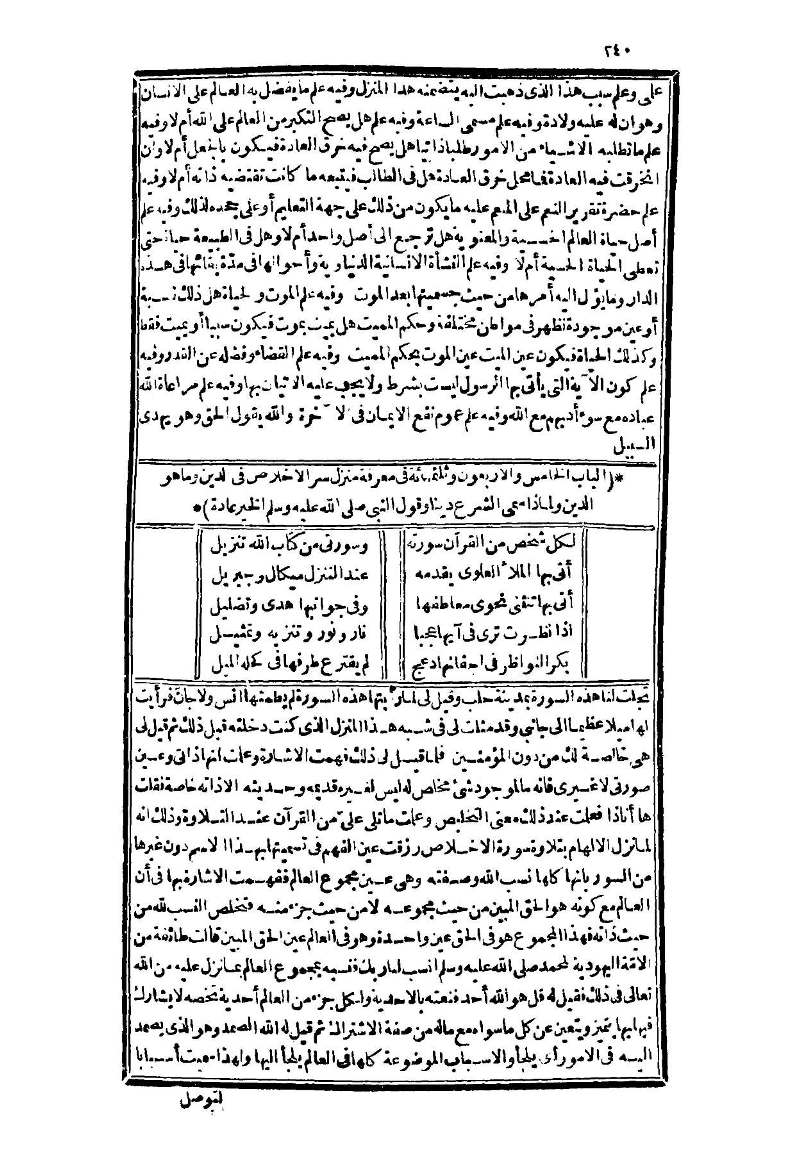 ٢٤٠
على وعلم سبب هذا الذى ذهبت اليه يتضمنه هذا المنزل وفيه علم ما يفضل به العالم على الانسان
وهو ان له عليه ولادة وفيه علم مسمى الساعة وفيه علم هل يصح التكبر من العالم على الله أم لا وفيه
علم ما تطلبه الاشياء من الامور طلباذاتيا هل يصح فيه خرق العادة فيكون بالجعل أم لا وان
انخرقت فيه العادة فما محل خرق العادة هل فى الطالب فيتبعه ما كانت تقتضيه ذاته أم لا وفيه
علم حضرة تقرير النعم على المنعم عليه ما يكون من ذلك على جهة التعليم أو على جحده لذلك وفيه علم
أصل حياة العالم الحسية والمعنوية هل ترجع الى أصل واحد أم لا وهل فى الطبيعة حياة حتى
تعطى الحياة الحسية أم لا وفيه علم النشأة الانسانية الدنياوية وأحوالها فى مدة بقائها فى هذه
الدار وما يؤل اليه أمرها من حيث جسميتها بعد الموت وفيه علم الموت والحياة هل ذلك نسبة
أو عين موجودة تظهر فى مواطن مختلفة وحكم المميت هل يميت بموت فيكون سببا أو يميت فقط
وكذلك الحياة فيكون عين الميت عين الموت بحكم المميت وفيه علم القضاء وفضله عن القدر وفيه
علم كون الآية التى يأتى بها الرسول ليست بشرط ولا يجب عليه الاتيان بها وفيه علم مراعاة الله
عباده مع سوء أدبهم مع الله وفيه علم عموم نفع الايمان فى الآخرة والله يقول الحق وهو يهدى
السبيل
*(الباب الخامس والاربعون وثلثمائة فى معرفة منزل سر الاخلاص فى الدين وما هو
الدين ولماذا سمى الشرع دينا وقول النبى صلى الله عليه وسلم الخير عادة)*
لكل شخص من القرآن سورته وسورتى من كتاب الله تنزيل
أتى بها الملأ العلوى يقدمه عند التنزل ميكال وجبريل
أتى بها تنثنى نحوى معاطفها وفى جوانبها هدى وتضليل
اذا نظرت ترى فى آيها عجبا نار ونور وتنزيه وتمثيل
بكر النواظر فى اجفانها دعج لم يقترع طرفها فى كحله الميل
تجلت لنا هذه السورة بمدينة حلب وقيل لى لما رأيتها هذه السورة لم يطمثها انس ولا جان فرأيت
لها ميلا عظيما الى جانبى وقد مثلت لى فى شبه هذا المنزل الذى كنت دخلته قبل ذلك ثم قيل لى
هى خالصة لك من دون المؤمنين فلما قيل لى ذلك فهمت الاشارة وعلمت انها ذاتى وعين
صورتى لا غيرى فانه ما لموجود شئ مخلص له ليس لغيره قديمه وحديثه الا ذاته خاصة فقلت
ها أنا ذا فعلمت عند ذلك معنى التخليص وعلمت ما تلى علىّ من القرآن عند التلاوة وذلك انه
لما نزل الالهام بتلاوة سورة الاخلاص رزقت عين الفهم فى تسميتها بهذا الاسم دون غيرها
من السور بانها كلها نسب الله وصفته وهى عين مجموع العالم ففهمت الاشارة بها فى أن
العالم مع كونه هو الحق المبين من حيث مجموعه لا من حيث جزء منه فتخلص النسب لله من
حيث ذاته فهذا المجموع هو فى الحق عين واحدة وهو فى العالم عين الحق المبين قالت طائفة من
الامة اليهودية لمحمد صلى الله عليه وسلم انسب لنا ربك فنسبه بمجموع العالم بما نزل عليه من الله
تعالى فى ذلك فقيل له قل هو الله أحد فنعته بالاحدية ولكل جزء من العالم أحدية تخصه لا يشارك
فيها بها يتميز ويتعين عن كل ما سواه مع ماله من صفة الاشتراك ثم قيل له الله الصمد وهو الذى يصمد
اليه فى الامور أى يلجأ والاسباب الموضوعة كلها فى العالم يلجأ اليها ولهذا سميت أسبابا
لتوصل